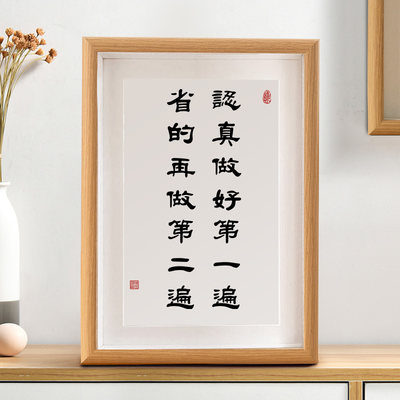 認真做好第一遍
省的再做第二遍